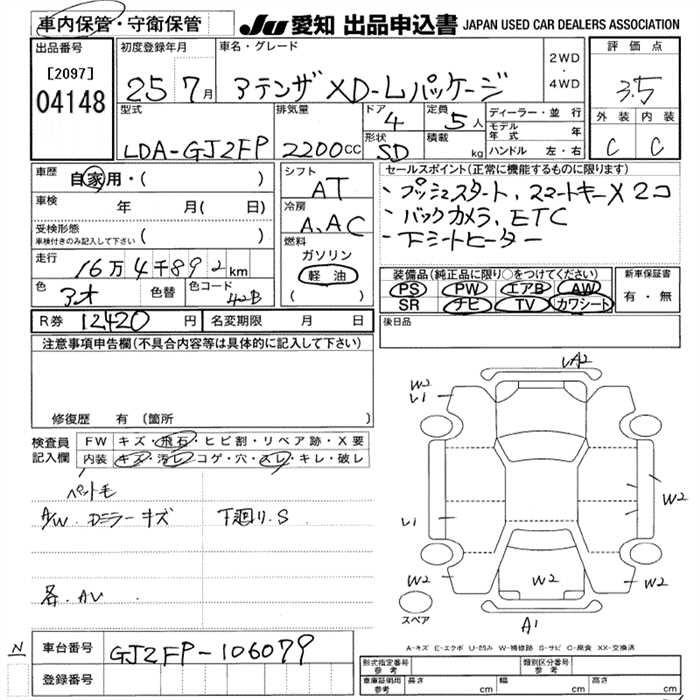 車内保管・守衛保管
JU 愛知 出品申込書 JAPAN USED CAR DEALERS ASSOCIATION
出品番号
[2097]
04148
初度登録年月
25 7月
車名・グレード
アテンザ XD-Lパッケージ
2WD
・
4WD
評価点
3.5
外装 内装
C C
型式
LDA-GJ2FP
排気量
2200cc
ドア
4
形状
SD
定員
5人
積載
kg
ディーラー・並行
モデル年式 年
ハンドル 左・右
車歴 自家用・( )
車検 年 月( 日)
受検形態
車検付きのみ記入して下さい ( )
走行 16万4千892km
色 アオ 色替 色コード 42B
シフト
AT
冷房
A,AC
燃料
ガソリン
軽油
( )
セールスポイント(正常に機能するものに限ります)
・プッシュスタート、スマートキーX2コ
・バックカメラ、ETC
・下シートヒーター
装備品(純正品に限り○をつけてください)
PS PW エアB AW
SR ナビ TV カワシート
新車保証書
有・無
後日品
R券 12420円 名変期限 月 日
注意事項申告欄(不具合内容等は具体的に記入して下さい)
修復歴 有 (箇所 )
検査員記入欄
FW キズ・飛石・ヒビ割・リペア跡・X要
内装 キズ・汚レ・コゲ・穴・スレ・キレ・破レ
ペット毛
A/W.Dミラーキズ 下廻り.S
各.AV
UA2
W2
U1
W2
U1
W2
W2
W2
A1
スペア
A-キズ E-エクボ U-凹み W-補修跡 S-サビ C-腐食 XX-交換済
N
車台番号 GJ2FP-106079
登録番号
形式指定番号
参考
類別区分番号
参考
車庫証明用
参考
長さ cm 幅 cm 高さ cm